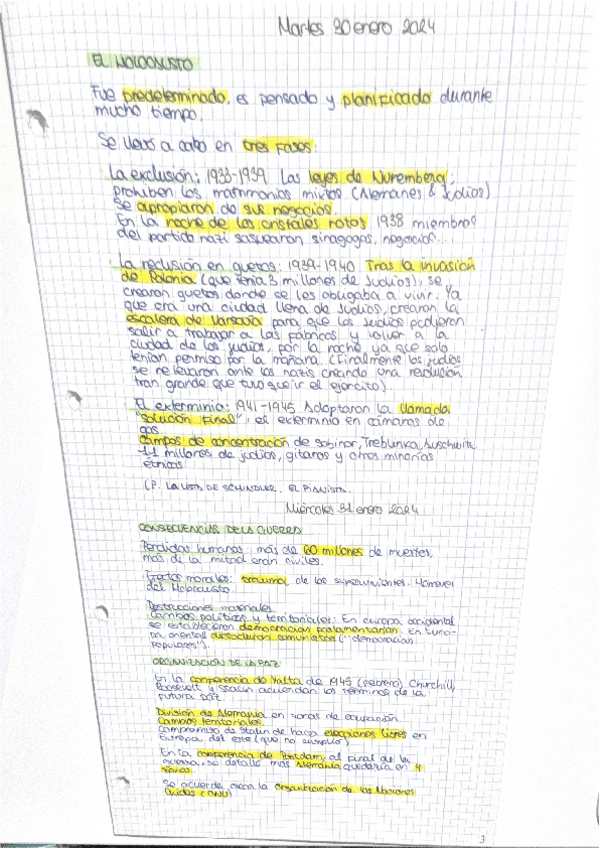 Martes 30 enero 2024
EL HOLOCAUSTO
Fue predeterminado, es pensado y planificado durante
mucho tiempo.
Se llevó a cabo en tres fases:
La exclusión: 1933-1939 Las leyes de Nuremberg:
prohiben los matrimonios mixtos (Alemanes & Judíos)
Se apropiaron de sus negocios.
En la noche de los cristales rotos 1938 miembros
del partido nazi saquearon sinagogas, negocios...
La reclusión en guetos: 1939-1940 Tras la invasión
de Polonia (que tenía 3 millones de judíos), se
crearon guetos donde se les obligaba a vivir. Ya
que era una ciudad llena de judíos, crearon la
escalera de Varsovia para que los judíos pudieran
salir a trabajar a las fábricas y volver a la
ciudad de los judíos, por la noche, ya que solo
tenían permiso por la mañana. (Finalmente los judíos
se revelaron ante los nazis creando una revolución
tran grande que tuvo que ir el ejercito)
El exterminio: 1941-1945 Adoptaron la llamada
"solución Final": es exterminio en cámaras de
gas
campos de concentración de sobinor, Treblinka, Auschwitz
11 millones de judíos, gitanos y otras minorías
étnicas
LA LISTA DE SCHINDLER. EL PIANISTA.
Miércoles 31 enero 2024
CONSECUENCIAS DE LA GUERRA
Perdidas humanas: más de 60 millones de muertes,
más de la mitad eran civiles.
morales: trauma de los supervivientes.
del Holocausto.
Destrucciones materiales.
Cambios políticos y territoriales: En europa occidental
se establecieron democracias parlamentarias. En Euro-
pa oriental dictaduras comunistas ("democracias
populares").
ORGANIZACIÓN DE LA PAZ
En la conferencia de Yalta de 1945 (febrero) Churchill,
Roosevelt y Stalin acuerdan los términos de la
futura paz
División de Alemania en zonas de ocupación.
Cambios territoriales.
Compromiso de Stalin de hacer elecciones libres en
Europa del este (que no cumplió)
En la conferencia de Potsdam, al final de la
guerra, se detalló más Alemania quedaría en 4
zonas.
Se acuerda crear la Organización de las Naciones
Unidas (ONU)
3